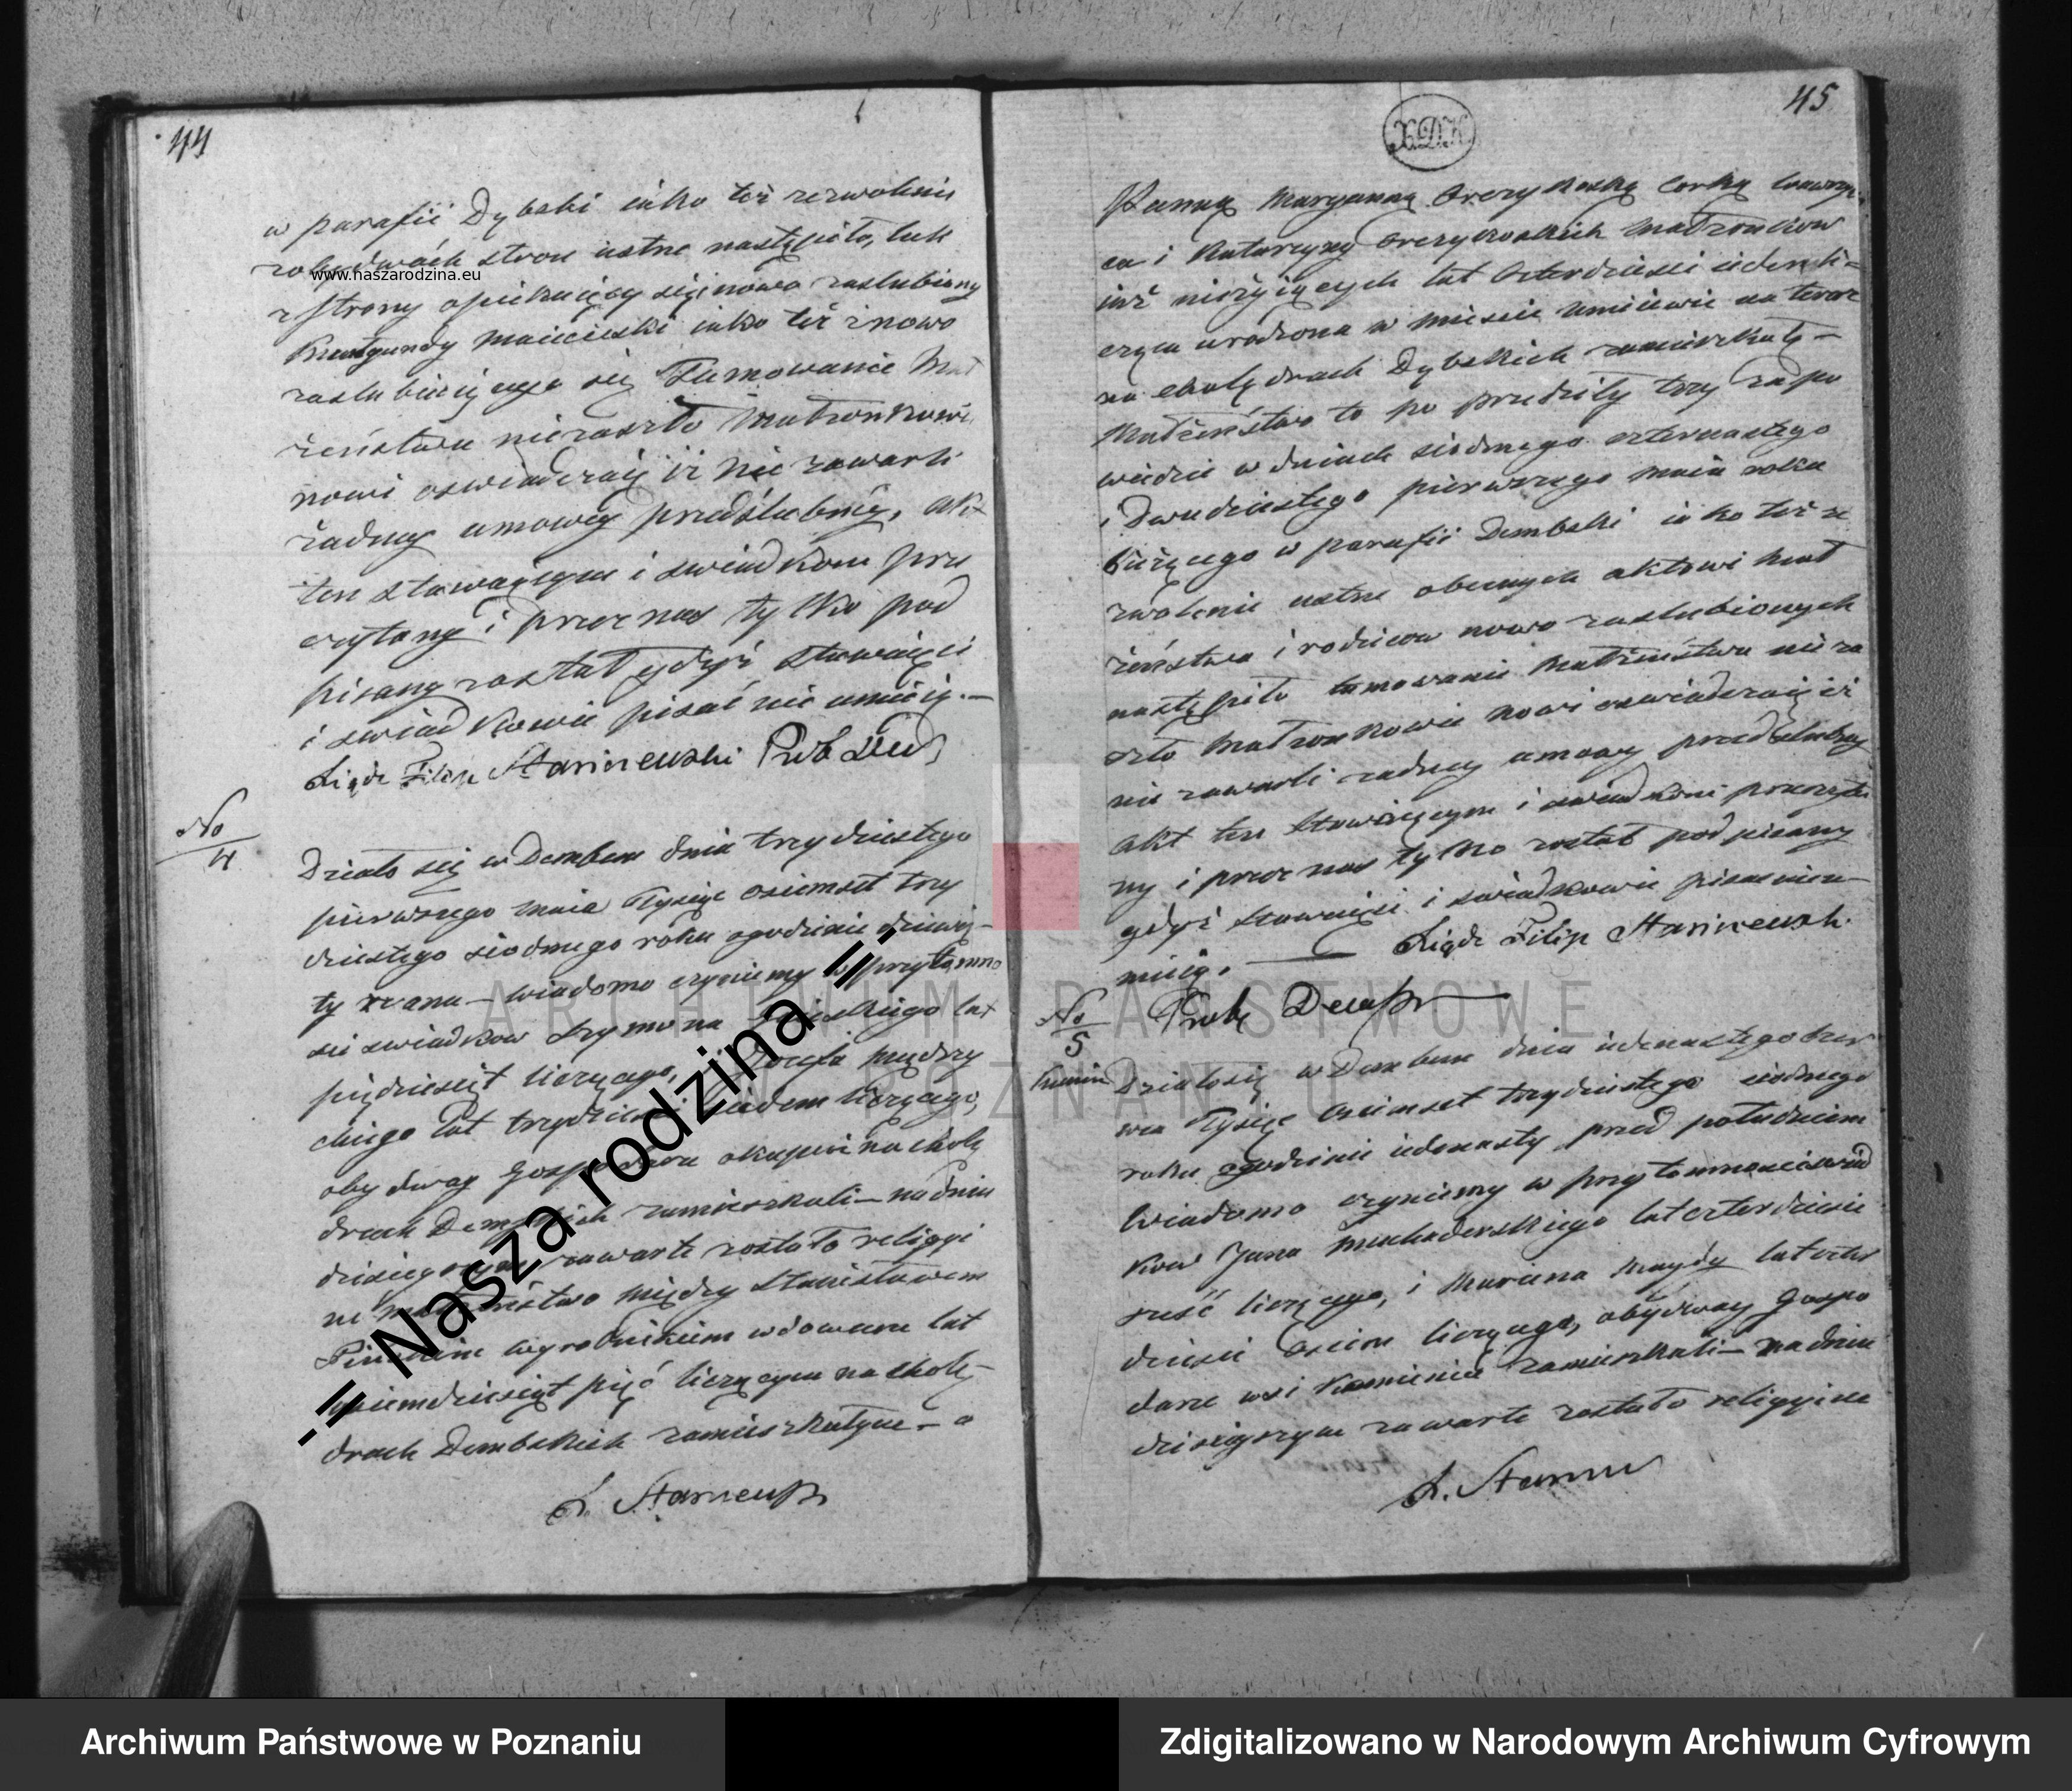 44
w parafii Dębski iako też zezwolenie
zobydwóch stron ustne nastąpiło, tak
www.naszarodzina.eu
z strony opiekuiący się nowo zaslubiony
Kunegundy iako też z nowo
zaslubiaiącego się Tamowanie Mał
żeństwa niezaszło Małzonkowie
nowi oswiadczaią iż nie zawarli
żadney umowy przedślubney, akt
ten stawaiącym i swiadkom prze
czytany i przez nas tylko pod
pisany został gdyż stawaiący
i swiadkowie pisać nie umieią.—
Xiądz Filip Prob
No
4
Działo się w Dembem dnia trzydziestego
pierwszego Maia Tysiąc osiemset trzy
dziestego siodmego roku ogodzinie dziewią-
ty zrana— Wiadomo czyniemy w przytomno
sci swiadkow Szymona lat
pięćdziesiąt liczącego, Józefa
lat trzydzieści siedem liczącego,
obydway Gospodarze okupni na cholę
drach zamieszkali— na dniu
dzisieyszym zawarte zostało religiyi
ne małżeństwo między Stanisławem
wyrobnikiem wdowcem lat
pięć liczącym na cholę-
drach Dembskich zamieszkałym— a
X.
-= Nasza rodzina =-
45
X.D.K.
Panną Maryanną corką Wawrzyn
ca i Katarzyny Małzonkow
iuż nieżyiących lat czterdzieści ieden li=
czącą urodzona w mieście Uniewie a teraz
na cholędrach Dębskich zamieszkałą—
Małżeństwo to poprzedziły trzy zapo
wiedzie w dniach siodmego czternastego
i Dwudziestego pierwszego maia roku
bieżącego w parafii Dembski iako też ze
zwolenie ustne obecnych aktowi mał
żeństwa i rodzicow nowo zaslubionych
nastąpiło tamowanie Małżeństwa nie za
szło Małzonkowie nowi oswiadczaią iż
nie zawarli żadney umowy przedslubny
akt ten stawaiącym i swiadkom przeczyta
ny i przez nas tylko został podpisany
gdyż stawaiący i swiadkowie pisac nieu—
mieią. — Xiądz Filip
Prob
No
5
Działo się w Dembem dnia iedenastego czer
wca Tysiąc Osiemset trzydziestego siodmego
roku ogodzinie iedenasty przed południem
Wiadomo czyniemy w przytomnosci swiad
kow Jana lat czterdzieści
sześć liczącego, i Marcina lat
dzieści osiem liczącego, obydway Gospo
darze wsi Kamienia zamieszkali— na dniu
dzisieyszym zawarte zostało religiyine
X.
ARCHIWUM PAŃSTWOWE
W POZNANIU
Archiwum Państwowe w Poznaniu
Zdigitalizowano w Narodowym Archiwum Cyfrowym